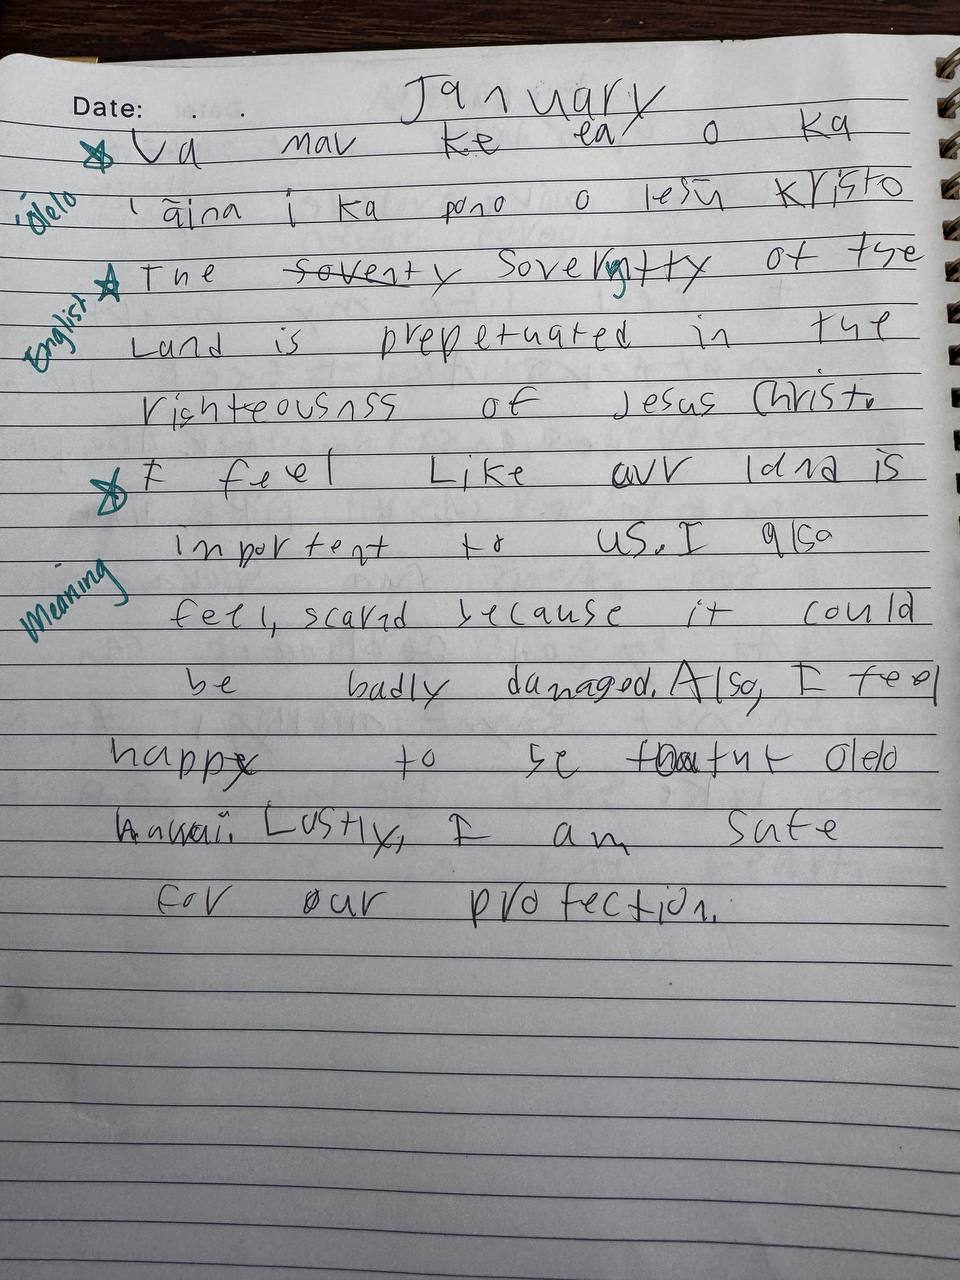 January
Date: . .
Ua mau ke ea o ka
Ōlelo
ʻāina i ka pono o Iesū Kristo
The soventy Soverigtty of the
English
Land is prepetuated in the
rishteousnss of Jesus Christ.
I feel Like our land is
importent to us. I also
Meaning
feel, scared because it could
be badly damaged. Also, I feel
happy to se Olelo
Hawaii. Lustly, I am Safe
for our protection.